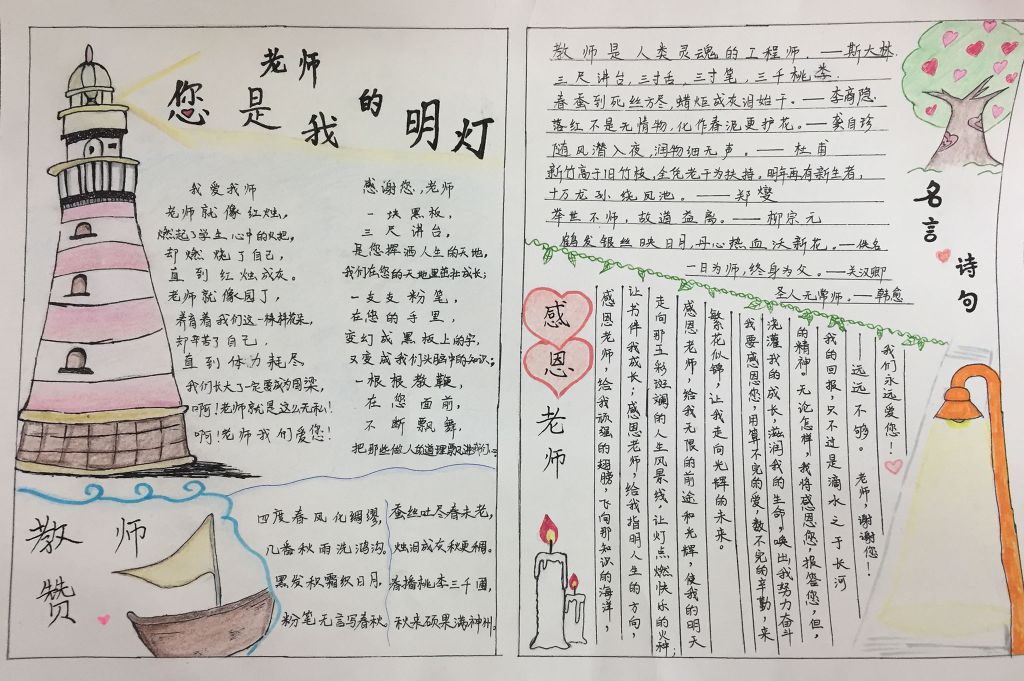 老师
您是我的明灯
我爱我师
老师就像红烛,
燃起了学生心中的火把,
却燃烧了自己,
直到红烛成灰。
老师就像园丁,
养育着我们这一棵棵花朵,
却辛苦了自己,
直到体力耗尽
我们长大了一定要成为国梁,
啊!老师就是这么无私!
啊!老师我们爱您!
感谢您,老师
一块黑板,
三尺讲台,
是您挥洒人生的天地,
我们在您的天地里茁壮成长;
一支支粉笔,
在您的手里,
变幻成黑板上的字,
又变成我们头脑中的知识;
一根根教鞭,
在您面前,
不断飘舞,
把那些做人的道理飘进我们心
教师赞
四度春风化绸缪,
几番秋雨洗鸿沟。
黑发积霜织日月,
粉笔无言写春秋。
蚕丝吐尽春未老,
烛泪成灰秋更稠。
春播桃李三千圃,
秋来硕果满神州。
教师是人类灵魂的工程师。——斯大林.
三尺讲台,三寸舌,三寸笔,三千桃李.
春蚕到死丝方尽,蜡炬成灰泪始干。——李商隐.
落红不是无情物,化作春泥更护花。——龚自珍
随风潜入夜,润物细无声。——杜甫
新竹高于旧竹枝,全凭老干为扶持。明年再有新生者,
十万龙孙绕凤池。———郑燮
举世不师,故道益离。——柳宗元
鹤发银丝映日月,丹心热血沃新花。——佚名
一日为师,终身为父。——关汉卿
圣人无常师。——韩愈
名言诗句
感恩老师
感恩老师,给我顽强的翅膀,飞向那知识的海洋,
让书伴我成长;感恩老师,给我指明人生的方向,
走向那五彩斑斓的人生风景线,让灯点燃快乐的火种;
感恩老师,给我无限的前途和光辉,使我的明天
繁花似锦,让我走向光辉的未来。
我要感恩您,用算不完的爱,数不完的辛勤,来
浇灌我的成长,滋润我的生命,唤出我努力奋斗
的精神。无论怎样,我将感恩您,报答您,但,
我的回报,只不过是滴水之于长河
——远远不够。老师,谢谢您!
我们永远爱您!